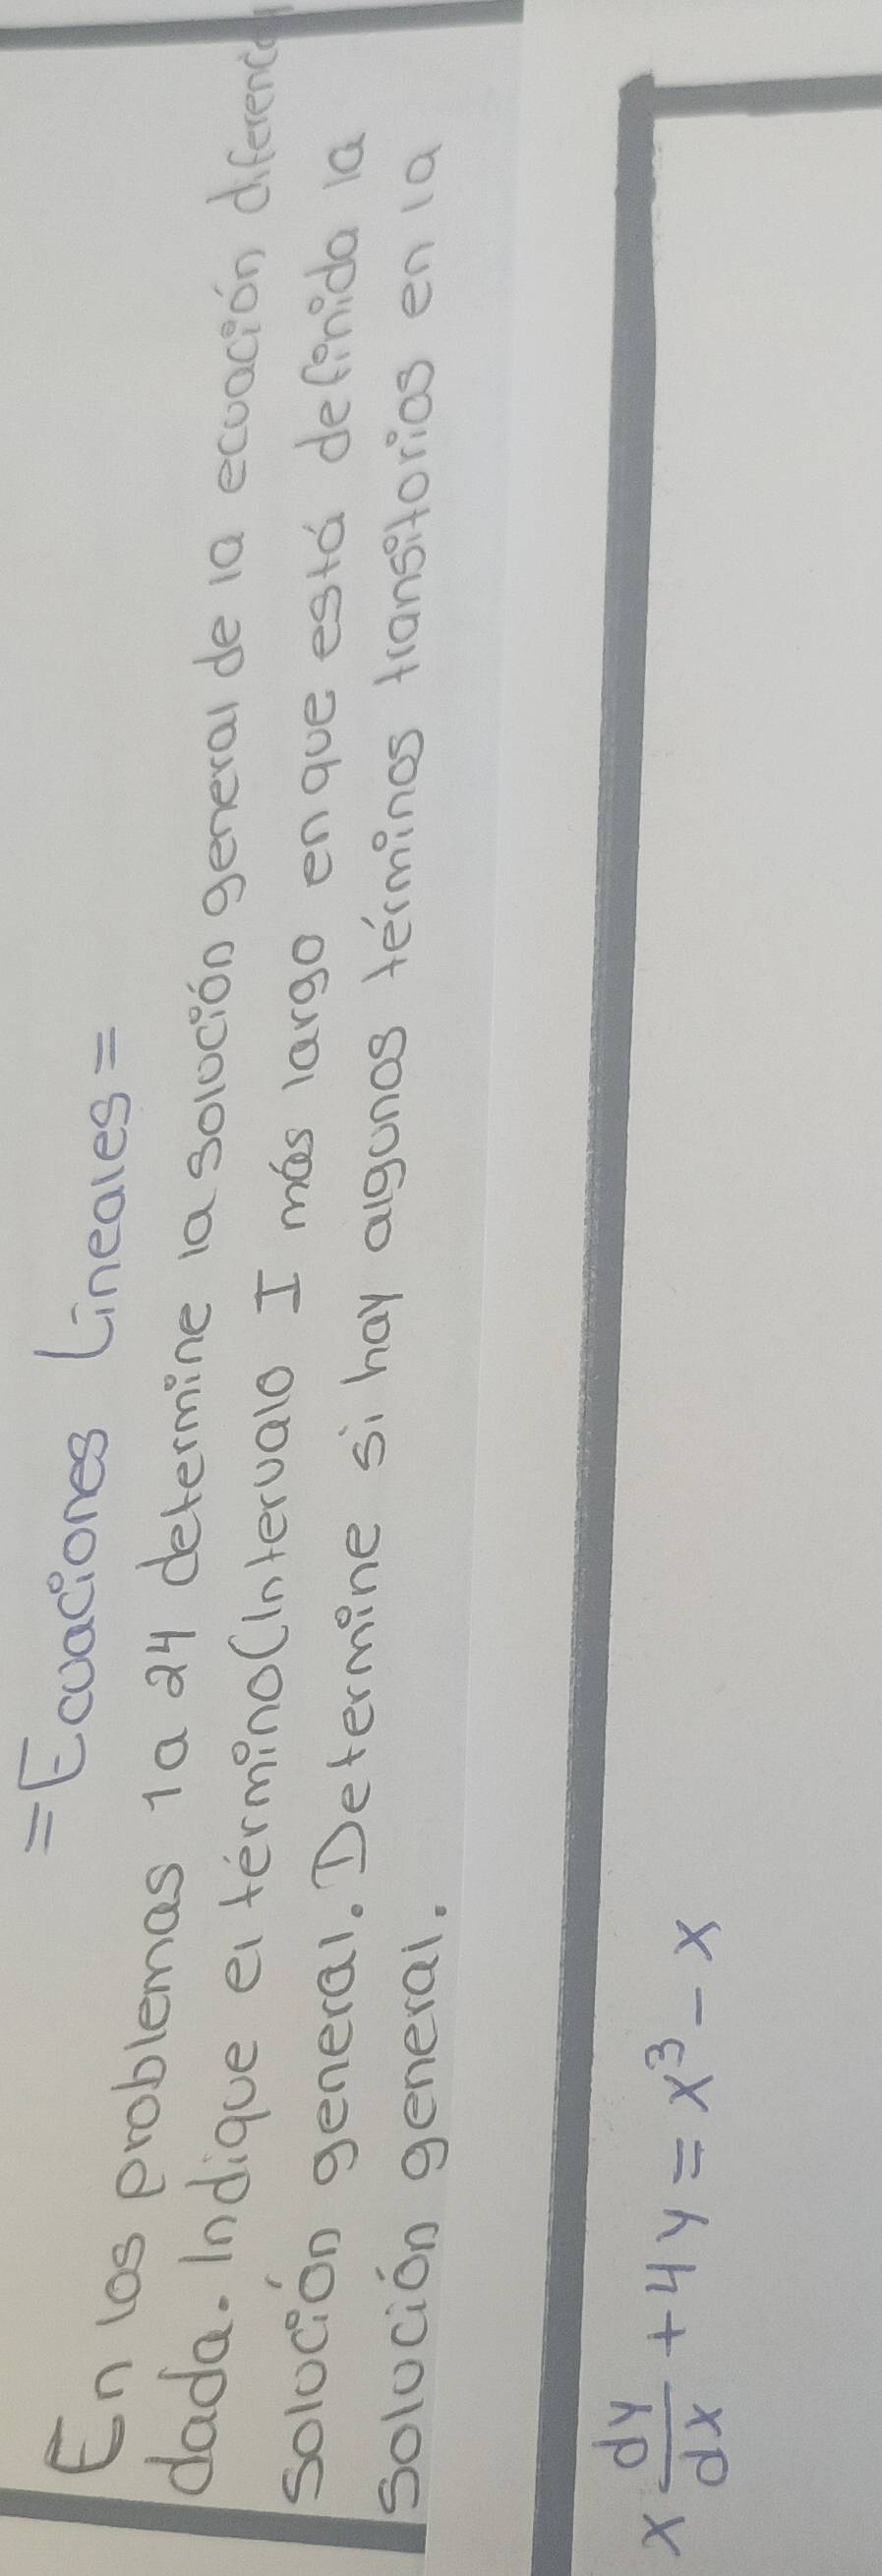 =Ecuaciones Lineales=
En los problemas 1 a 24 determine la solución general de la ecuación
dada. Indique el término(Intervalo I más largo en que está definida la
solución general. Determine si hay algunos términos transitorios en la
solución general.
x dy/dx + 4y = x³ - x